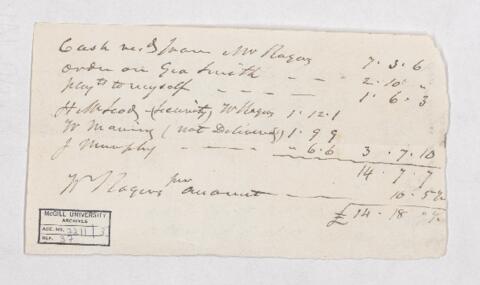 Cash rec'd from Mr Rogers 7 . 3 . 6
Order on Geo Smith - - - 2 . 10 "
pay'ts to myself - - - - 1 . 6 . 3
H McLeod (Security) W Rogers 1 . 12 . 1
W Manning (not Delivered) 1 . 9 9
J Murphy - - - - " 6 . 6 3 . 7 . 10
14 . 7 . 7
W Rogers per amount 10 . 5 ½
£ 14 . 18 . " ½
McGILL UNIVERSITY
ARCHIVES
ACC. NO. 3211 3
REF. 37